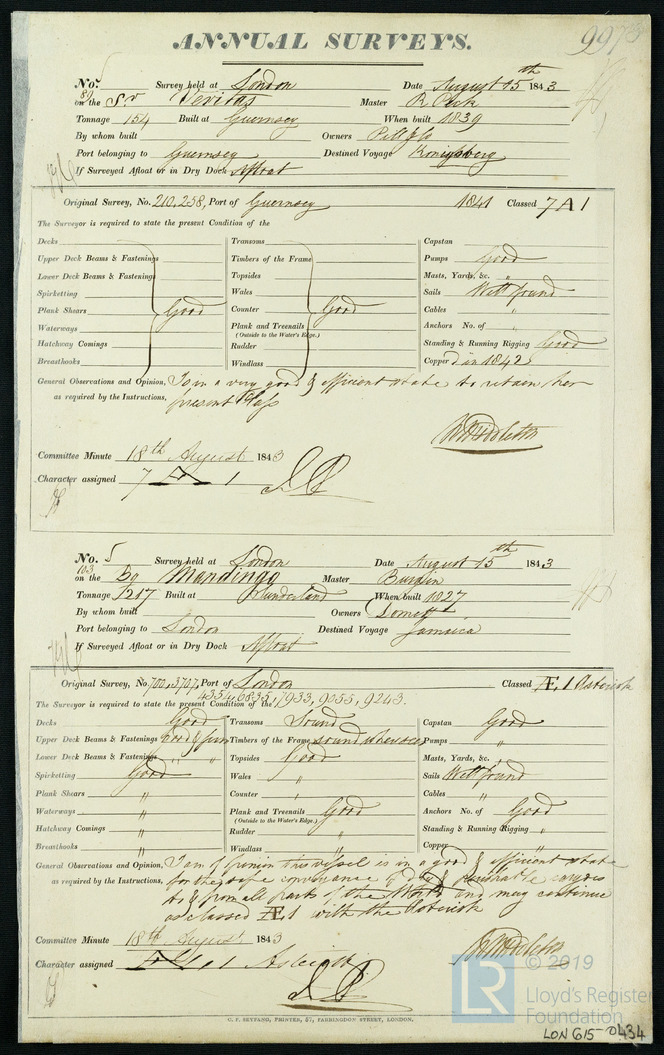 ANNUAL SURVEYS.
No. 5 Survey held at London Date August 15th 1843
89 on the Sr Veritas Master R Peek
Tonnage 154 Built at Guernsey When built 1839
By whom built Owners
Port belonging to Guernsey Destined Voyage Konigsberg
If Surveyed Afloat or in Dry Dock Afloat
Original Survey, No. 210,258, Port of Guernsey 1841 Classed 7 A 1
The Surveyor is required to state the present Condition of the
Decks Transoms Capstan
Upper Deck Beams & Fastenings Timbers of the Frame Pumps Good
Lower Deck Beams & Fastenings Topsides Masts, Yards, &c. "
Spirketting Wales Sails Well found
Plank Shears Good Counter Good Cables "
Waterways Plank and Treenails Anchors No. of "
(Outside to the Water's Edge.)
Hatchway Comings Rudder Standing & Running Rigging Good
Breasthooks Windlass Copper'd in 1842
General Observations and Opinion, Is in a very good & efficient state to retain her
as required by the Instructions, present Class
Committee Minute 18th August 1843
Character assigned 7 A 1
No. 5 Survey held at London Date August 15th 1843
103 on the Bg Mandingo Master Burgin
Tonnage 217 Built at Sunderland When built 1827
By whom built Owners Somett
Port belonging to London Destined Voyage Jamaica
If Surveyed Afloat or in Dry Dock Afloat
Original Survey, No. 700, 3707, Port of London Classed Æ, 1 Asterisk
4354, 6833, 7933, 9055, 9243.
The Surveyor is required to state the present Condition of the
Decks Good Transoms Sound Capstan Good
Upper Deck Beams & Fastenings Good & firm Timbers of the Frame sound where seen Pumps "
Lower Deck Beams & Fastenings " " Topsides Good Masts, Yards, &c. "
Spirketting Good Wales " Sails Well found
Plank Shears " Counter " Cables "
Waterways " Plank and Treenails Good Anchors No. of Good
(Outside to the Water's Edge.)
Hatchway Comings " Rudder Standing & Running Rigging "
Breasthooks " Windlass " Copper "
General Observations and Opinion, I am of opinion this vessel is in a good & efficient state
as required by the Instructions, for the safe conveyance of dry & perishable cargoes
to & from all parts of the World and may continue
as classed Æ 1 with the Asterisk
Committee Minute 18th August 1843
Character assigned Æ 1 Asterisk
C. F. SEYFANG, PRINTER, 57, FARRINGDON STREET, LONDON.
LR © 2019
Lloyd's Register
Foundation
LON 615-0434